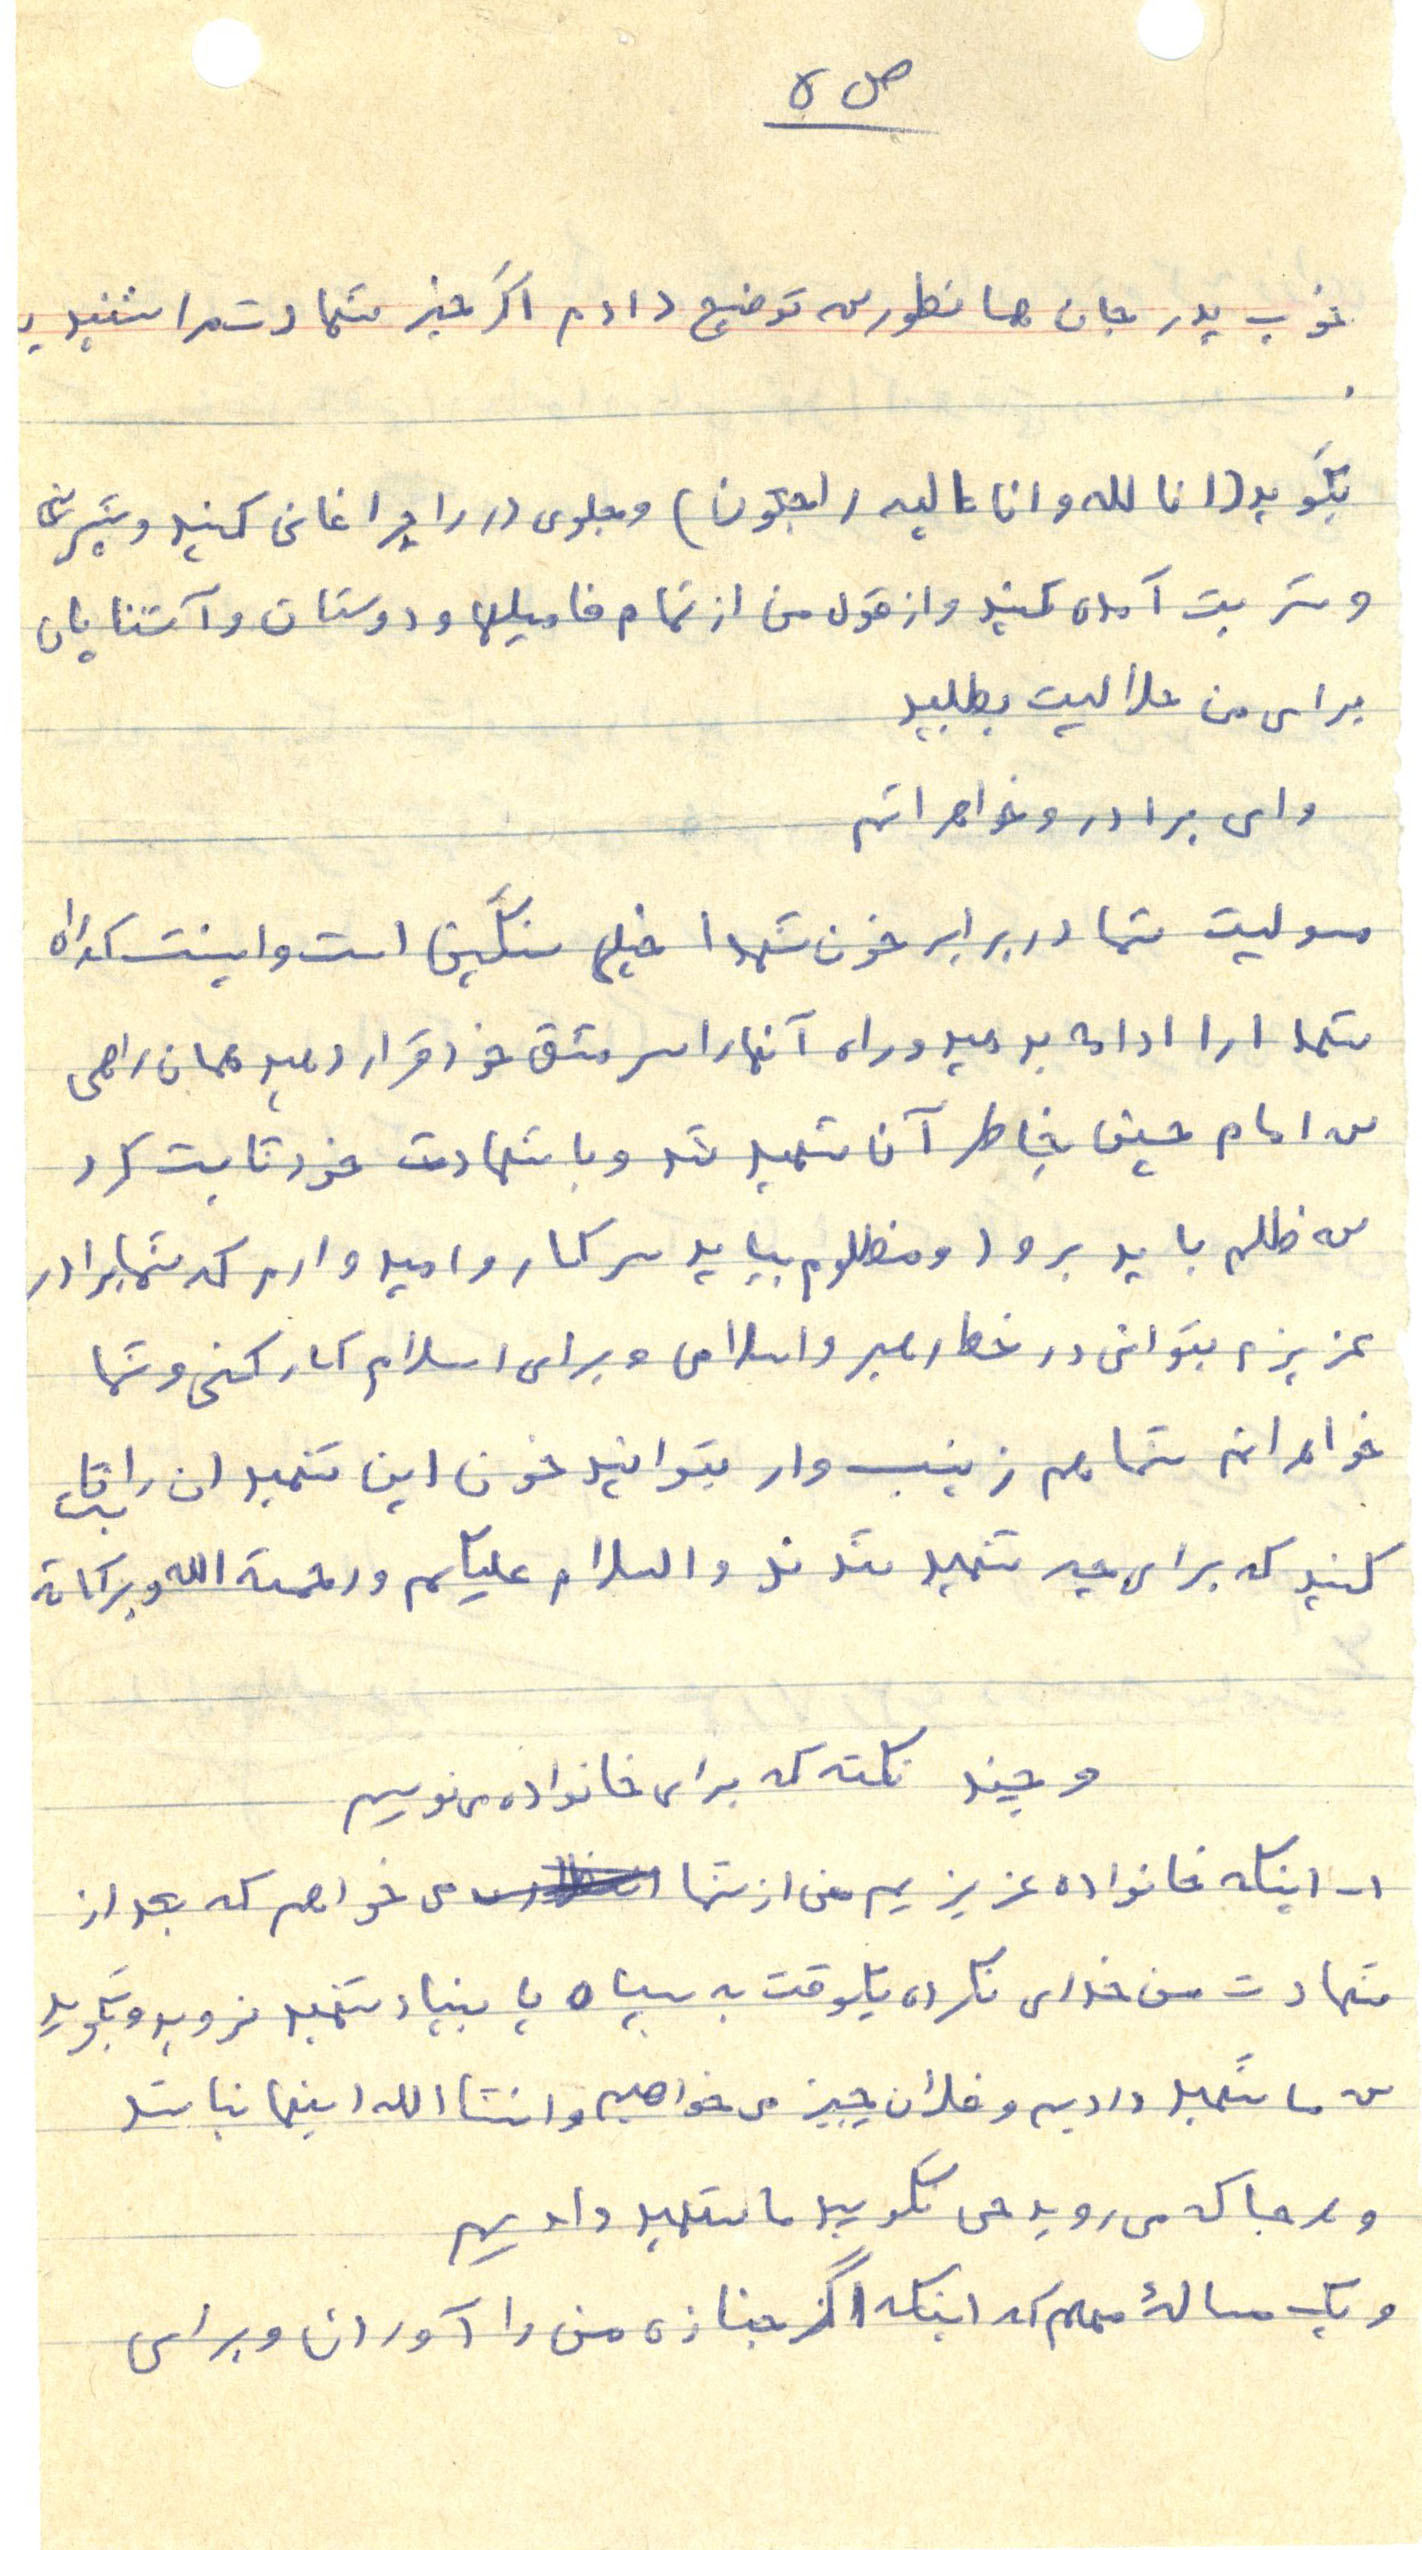 ص ۵
خوب پدر جان همانطور که توضیح دادم اگر خبر شهادت مرا شنیدید
بگوید (انا لله و انا الیه راجعون) و جلوی در را چراغانی کنید و شیرینی
و شربت آماده کنید و از قول من از تمام فامیلها و دوستان و آشنایان
برای من حلالیت بطلبید
و ای برادر و خواهرانم
مسولیت شما در برابر خون شهدا خیلی سنگین است و اینست که راه
شهدا را ادامه بدهید و راه آنها را سر مشق خود قرار دهید همان راهی
که امام حسین بخاطر آن شهید شد و با شهادت خود ثابت کرد
که ظلم باید برود و مظلوم بیاید سر کار و امیدوارم که شما برادر
عزیزم بتوانی در خط رهبر و اسلامی و برای اسلام کار کنی و شما
خواهرانم شما هم زینب وار بتوانید خون این شهیدان را ثابت
کنید که برای چه شهید شدند و السلام علیکم و رحمته الله و برکاته
و چند نکته که برای خانواده می نویسم
۱- اینکه خانواده عزیزیم من از شما می خواهم که بعد از
شهادت من خدای نکرده یکوقت به سپاه یا بنیاد شهید نروید و بگوید
که ما شهید دادیم و فلان چیز می خواهیم و انشا الله اینها نباشد
و هر جا که می روید هی نگویید ما شهید دادیم
و یک مسالهٔ مهم که اینکه اگر جنازه من را آوردن و برای